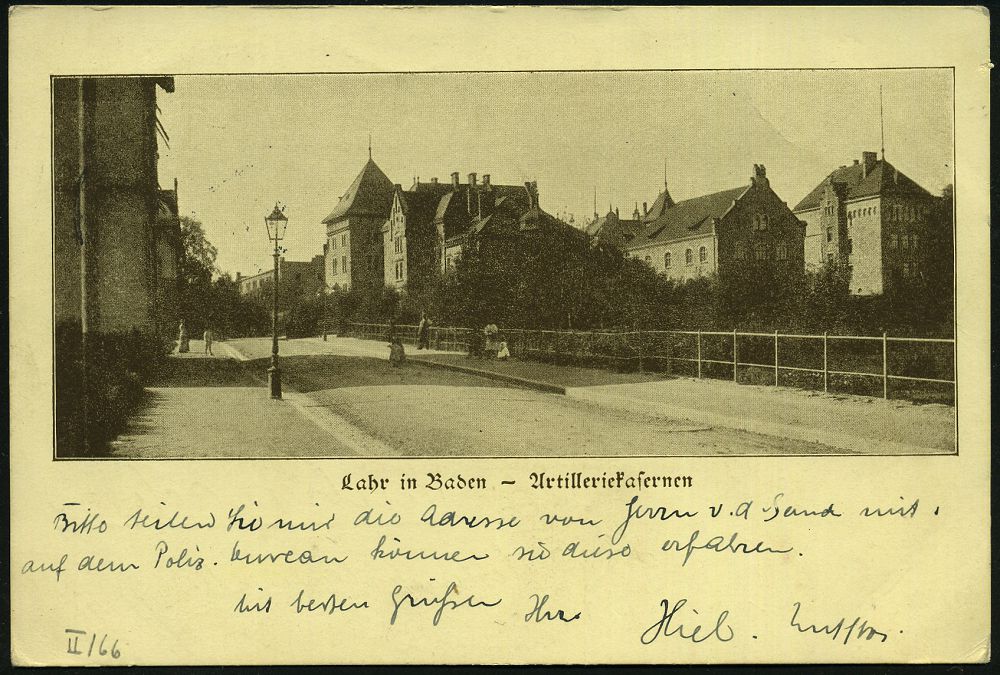 Lahr in Baden – Artilleriekasernen
Bitte teilen Sie mir die Adresse von Herrn v. d. Sand mit.
auf dem Poliz. bureau können sie diese erfahren.
Mit besten Grüßen Ihr
Hiel.
II/66